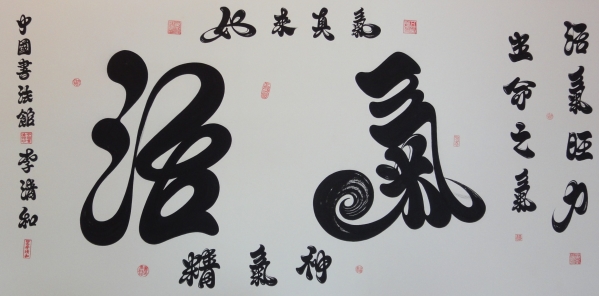 如來真氣
活氣
精氣神
活氣旺力
生命之氣
中國書法館 李清和